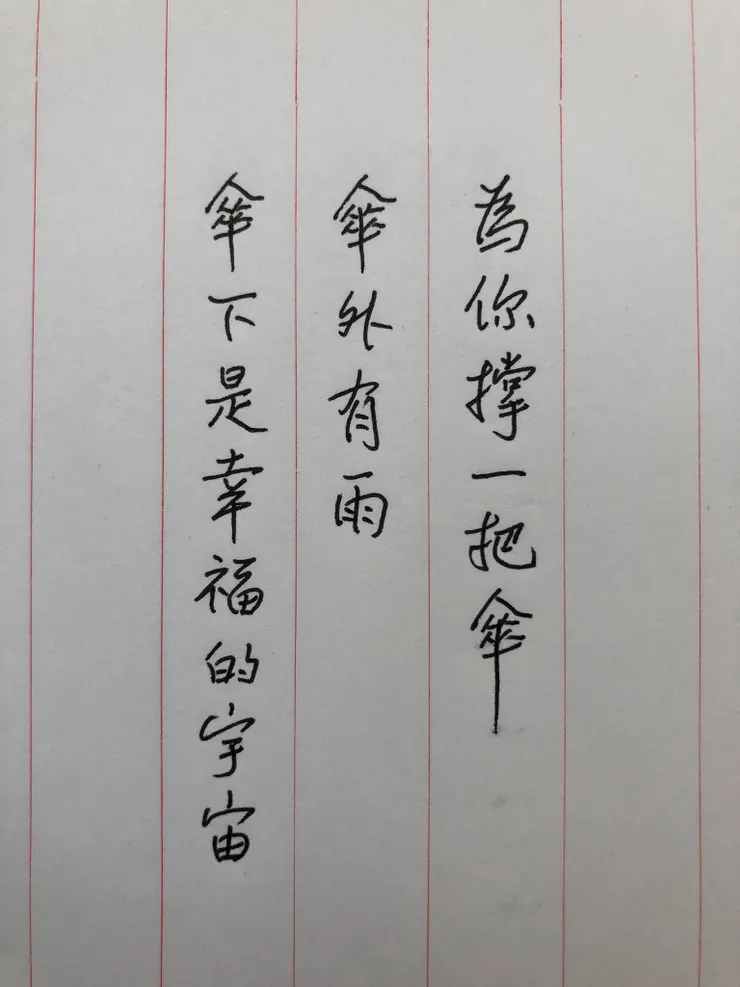 為你撐一把傘
傘外有雨
傘下是幸福的宇宙